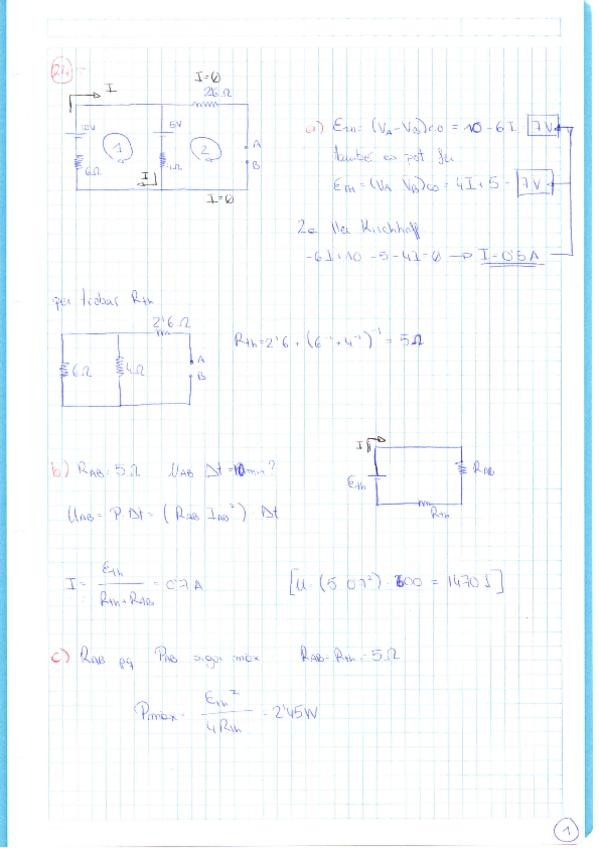 21.-
I
I=0
2'6Ω
10V
6Ω
1
5V
4Ω
2
A
B
I
I=0
a) Eth = (VA-VB)c.o = 10-6I = 7V
també es pot fer
Eth = (VA VB)co = 4I+5 = 7V
2a llei Kirchhoff
-6I+10-5-4I=0 → I=0'5A
per trobar Rth
2'6Ω
6Ω
4Ω
A
B
Rth=2'6+(6⁻¹+4⁻¹)⁻¹=5Ω
b) RAB=5Ω UAB Δt=10min?
I
Eth
RAB
Rth
UAB = P·Δt = (RAB IAB²)·Δt
I = Eth / Rth+RAB = 0'7A
[U=(5·0'7²)·600 = 1470J]
c) RAB pq PAB sigui màx RAB=Rth=5Ω
Pmàx = Eth² / 4Rth = 2'45W
1